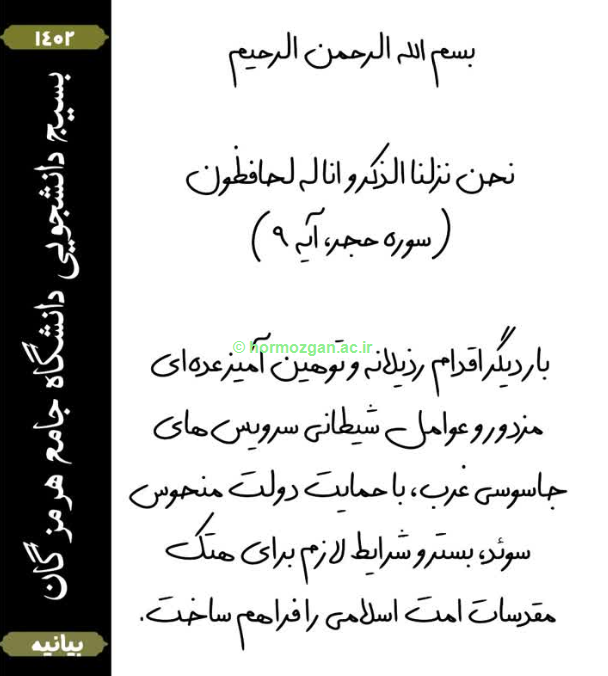 ۱۴۰۲
بسیج دانشجویی دانشگاه جامع هرمزگان
بیانیه
بسم الله الرحمن الرحیم
نحن نزلنا الذکر و انا له لحافظون
(سوره حجر، آیه ۹)
© hormozgan.ac.ir
بار دیگر اقدام رذیلانه و توهین آمیز عده‌ای
مزدور و عوامل شیطانی سرویس های
جاسوسی غرب، با حمایت دولت منحوس
سوئد، بستر و شرایط لازم برای هتک
مقدسات امت اسلامی را فراهم ساخت.